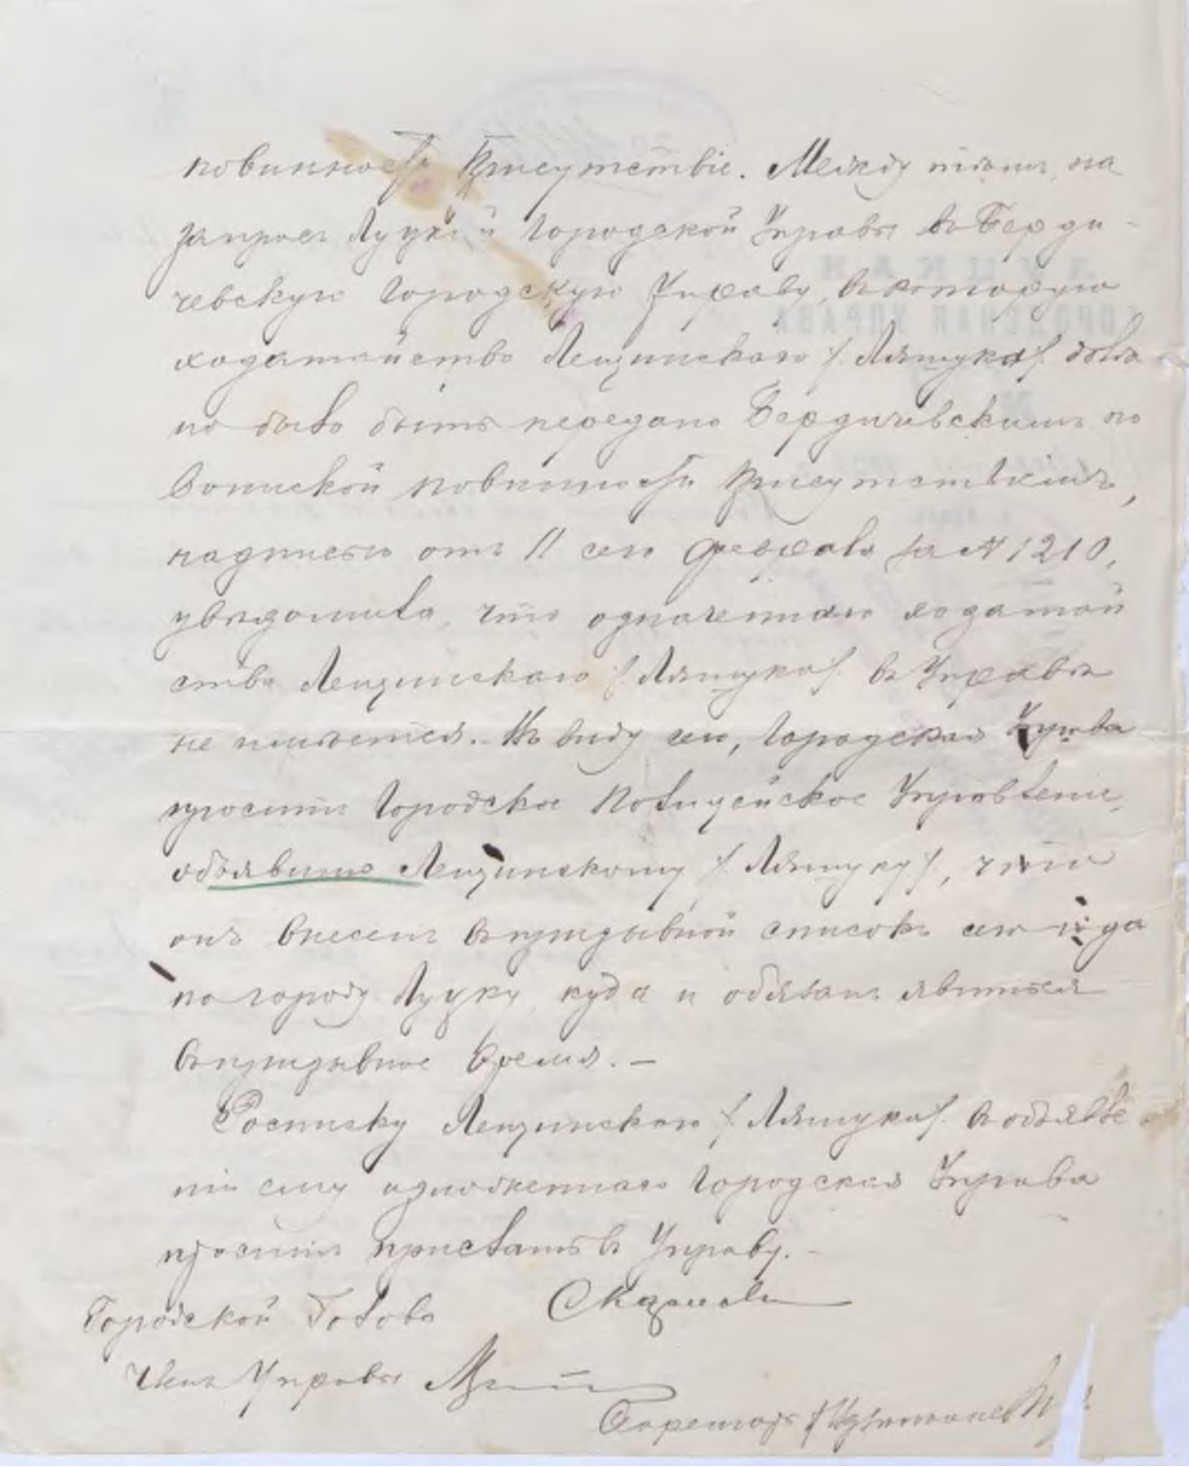 повинности Присутствіе. Между тѣмъ, на
запросъ Луцкой Городской Управы въ Берди-
чевскую Городскую Управу, въ которую
ходатайство Лещинскаго /Ляшука/ долж-
но было быть передано Бердичевскимъ по
воинской повинности Присутствіемъ,
надписью отъ 11 сего Февраля за № 1210,
увѣдомила, что означеннаго ходатай
ства Лещинскаго /Ляшука/ въ Управѣ
не имѣется. Въ виду сего, Городская Управа
проситъ Городское Полицейское Управленіе,
объявить Лещинскому /Ляшуку/, что
онъ внесенъ въ призывной списокъ сего года
по городу Луцку, куда и обязанъ явиться
въ призывное время. —
Росписку Лещинскаго /Ляшука/ въ объявле
ніи ему изложеннаго Городская Управа
проситъ прислать въ Управу. —
Городской Голова
Членъ Управы
Секретарь
ЛУЦКАЯ
ГОРОДСКАЯ УПРАВА